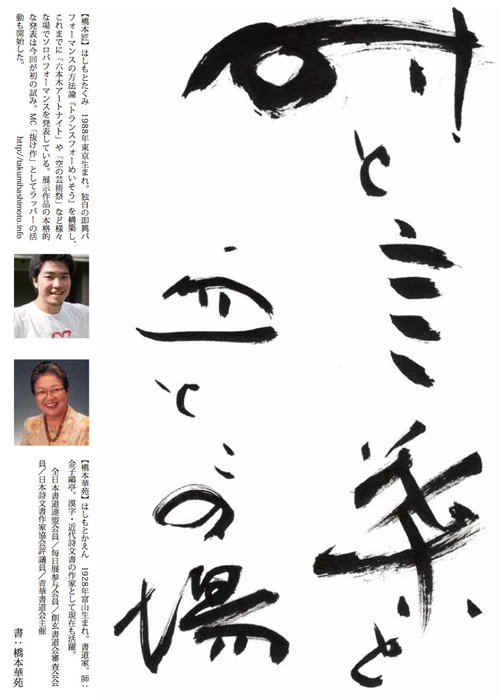 と言葉と
とこの場
【橋本匠】はしもとたくみ　1988年東京生まれ。独自の即興パ
フォーマンスの方法論『トランスフォーめいそう』を構築し、
これまでに「六本木アートナイト」や「空の芸術祭」など様々
な場でソロパフォーマンスを発表している。展示作品の本格的
な発表は今回が初の試み。MC「抜け作」としてラッパーの活
動も開始した。　http://takumihashimoto.info
【橋本華苑】はしもとかえん　1928年富山生まれ。書道家。師：
金子鷗亭。漢字・近代詩文書の作家として現在も活躍。
全日本書道連盟会員／毎日展参与会員／創玄書道会審査会会
員／日本詩文書作家協会評議員／青華書道会主催
書：橋本華苑